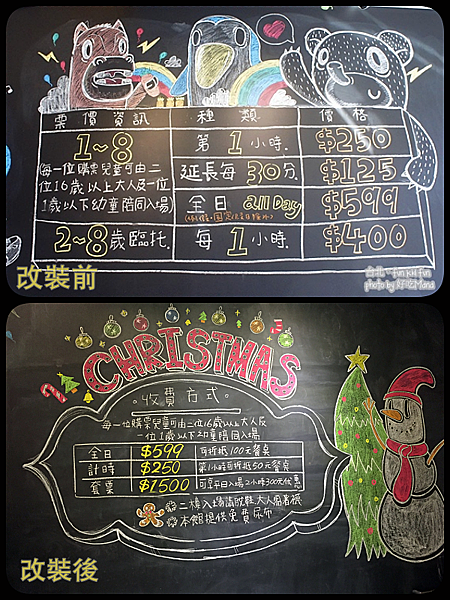 票價資訊 種類 價格
1~8 第1小時 $250
(每一位購票兒童可由二
位16歲以上大人及一位
1歲以下幼童陪同入場)
延長每30分 $125
全日 all Day $599
2~8歲臨托 每1小時 $400
改裝前
fun KM fun
photo by
CHRISTMAS
收費方式
每一位購票兒童可由二位16歲以上大人及
一位1歲以下幼童陪同入場
全日 $599 可折抵100元餐桌
計時 $250 第1小時可折抵50元餐桌
套票 $1,500 可享平日入場2小時300元優惠
二樓入場請脫鞋大人需著襪
本館提供免費尿布
改裝後